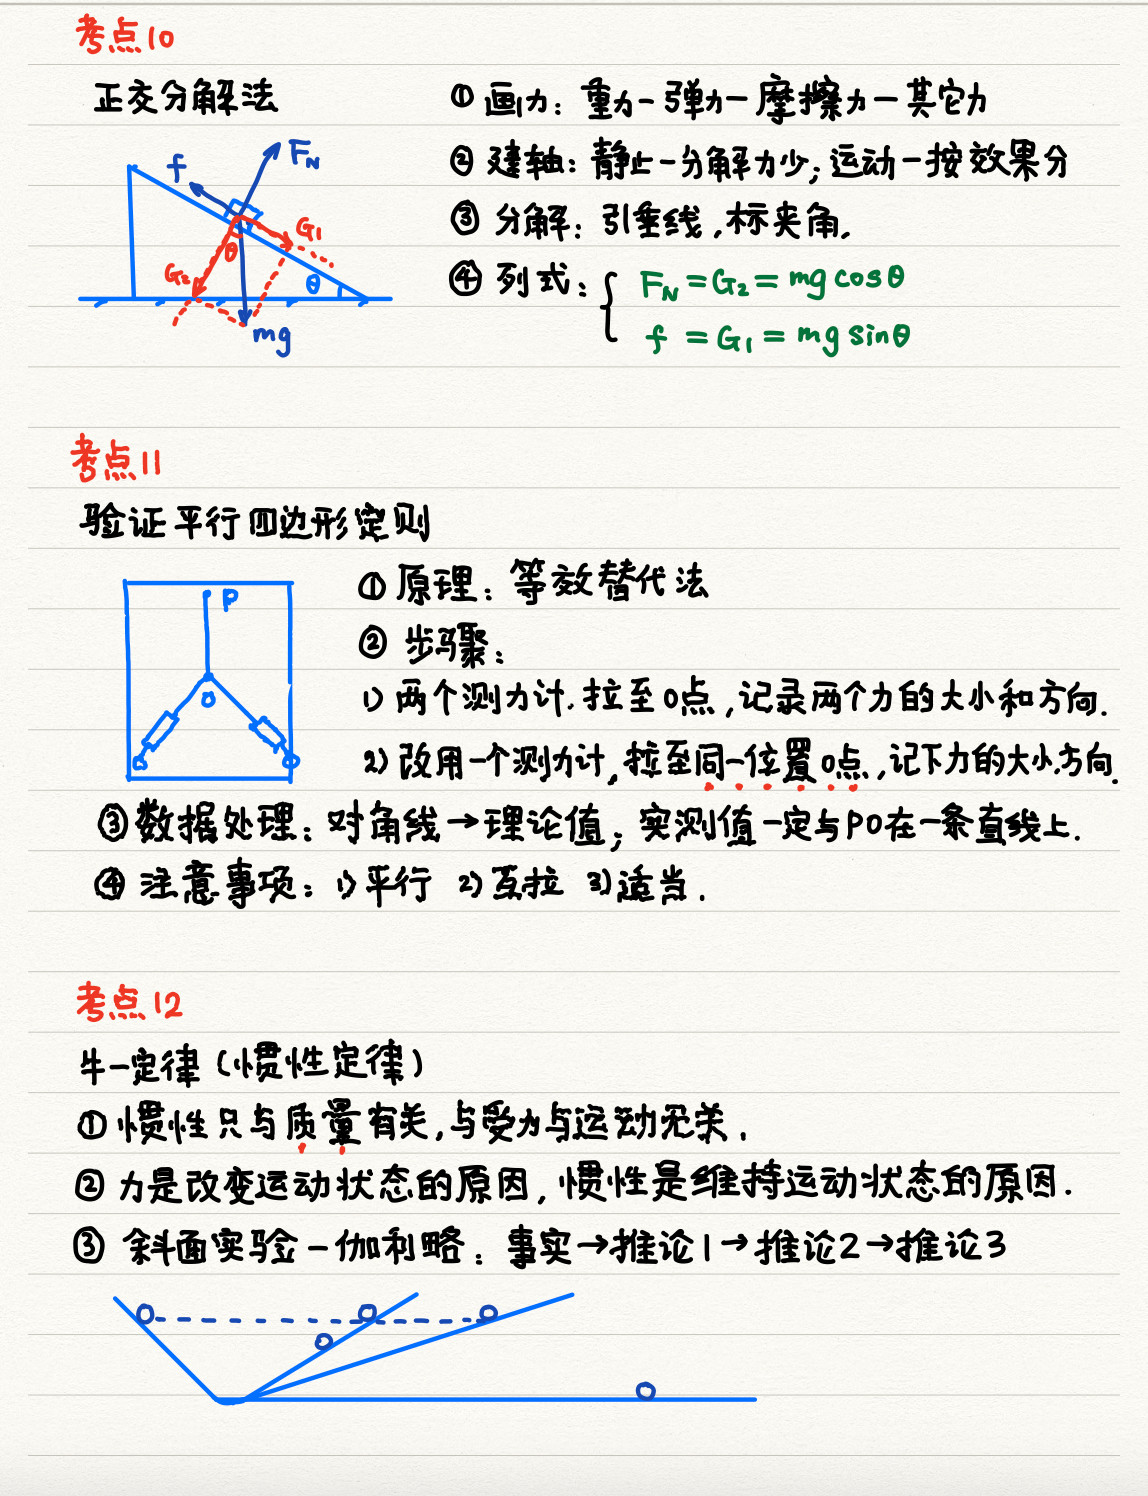 考点10
正交分解法
① 画力：重力－弹力－摩擦力－其它力
② 建轴：静止－分解力少；运动－按效果分
③ 分解：引垂线，标夹角.
④ 列式：{ F_N = G₂ = mg cosθ
f = G₁ = mg sinθ
f
F_N
G₁
θ
G₂
θ
mg
考点11
验证平行四边形定则
① 原理：等效替代法
② 步骤：
1) 两个测力计.拉至O点,记录两个力的大小和方向.
2) 改用一个测力计,拉至同一位置O点,记下力的大小.方向.
P
O
③ 数据处理：对角线→理论值；实测值一定与PO在一条直线上.
④ 注意事项：1) 平行 2) 互拉 3) 适当.
考点12
牛一定律（惯性定律）
① 惯性只与质量有关,与受力与运动无关.
② 力是改变运动状态的原因,惯性是维持运动状态的原因.
③ 斜面实验－伽利略：事实→推论1→推论2→推论3